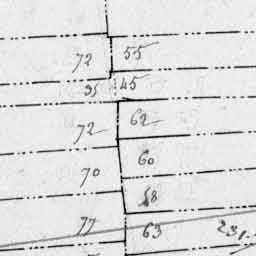 72 55
35 45
72 62
70 60
58
77 63 231